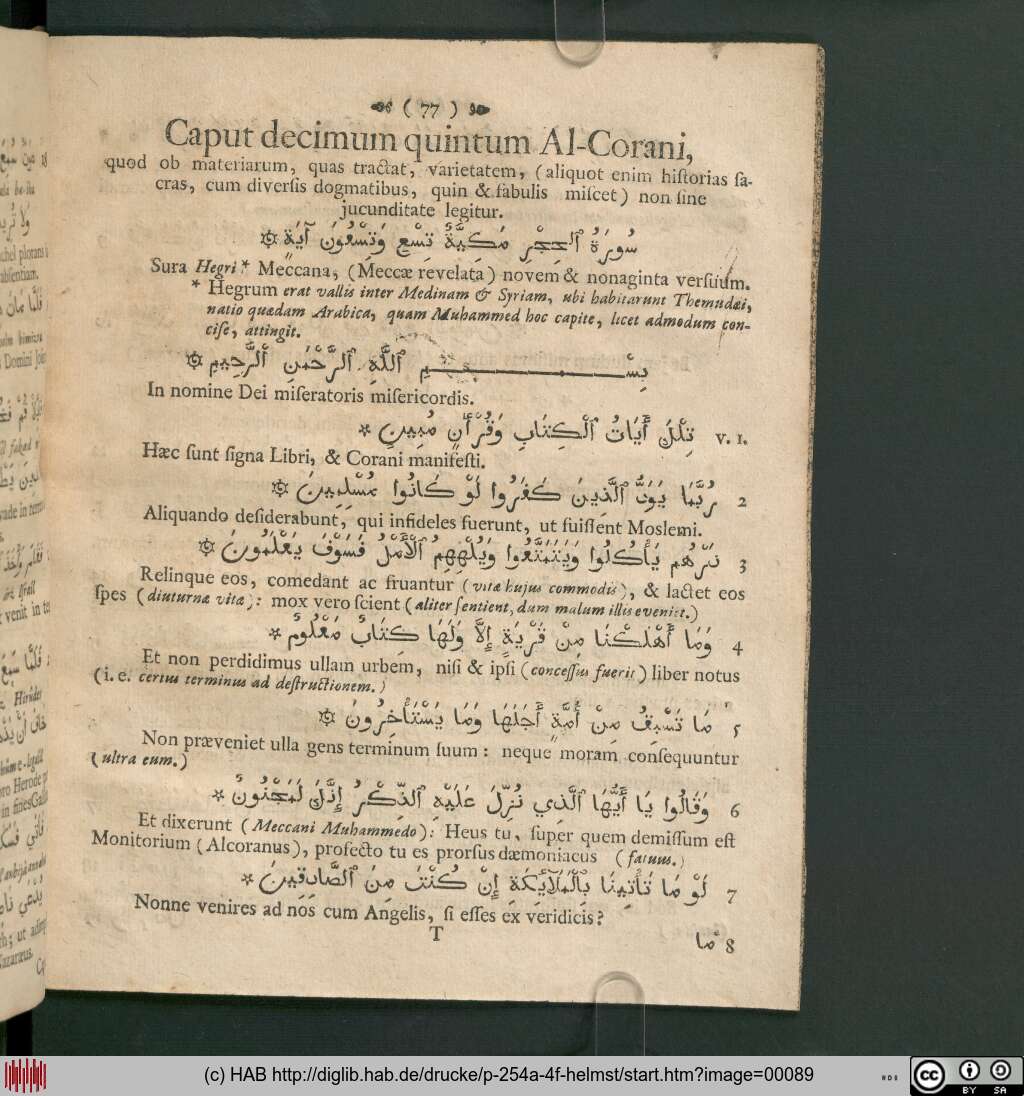 ( 77 )
Caput decimum quintum Al-Corani,
quod ob materiarum, quas tractat, varietatem, (aliquot enim historias sa-
cras, cum diversis dogmatibus, quin & fabulis miscet) non sine
jucunditate legitur.
سُورَةُ ٱلْحِجْرِ مَكِيَّةٌ تِسْعٍ وَتِسْعُونَ آيَةً ۞
Sura Hegri * Meccana, (Meccæ revelata) novem & nonaginta versuum.
* Hegrum erat vallis inter Medinam & Syriam, ubi habitarunt Themudæi,
natio quædam Arabica, quam Muhammed hoc capite, licet admodum con-
cise, attingit.
بِسْمِ ٱللَّهِ ٱلرَّحْمَنِ ٱلرَّحِيمِ ۞
In nomine Dei miseratoris misericordis.
تِلْكَ أَيَاتُ ٱلْكِتَابِ وَقُرْأَنٍ مُبِينٍ * v. 1.
Hæc sunt signa Libri, & Corani manifesti.
رُبَّمَا يَوَدُّ ٱلَّذِينَ كَفَرُوا لَوْ كَانُوا مُسْلِمِينَ ۞ 2
Aliquando desiderabunt, qui infideles fuerunt, ut fuissent Moslemi.
ذَرْهُم يَأْكُلُوا وَيَتَمَتَّعُوا وَيُلْهِهِمُ ٱلْأَمَلُ فَسَوْفَ يَعْلَمُونَ ۞ 3
Relinque eos, comedant ac fruantur (vitæ hujus commodis), & lactet eos
spes (diuturnæ vitæ): mox vero scient (aliter sentient, dum malum illis eveniet.)
وَمَا أَهْلَكْنَا مِنْ قَرْيَةٍ إِلَّا وَلَهَا كِتَابٌ مَعْلُومٌ * 4
Et non perdidimus ullam urbem, nisi & ipsi (concessus fuerit) liber notus
(i. e. certus terminus ad destructionem.)
مَا تَسْبِقُ مِنْ أُمَّةٍ أَجَلَهَا وَمَا يَسْتَأْخِرُونَ ۞ 5
Non præveniet ulla gens terminum suum: neque moram consequuntur
(ultra eum.)
وَقَالُوا يَا أَيُّهَا ٱلَّذِي نُزِّلَ عَلَيْهِ ٱلذِّكْرُ إِنَّكَ لَمَجْنُونٌ * 6
Et dixerunt (Meccani Muhammedo): Heus tu, super quem demissum est
Monitorium (Alcoranus), profecto tu es prorsus dæmoniacus (fatuus.)
لَوْ مَا تَأْتِينَا بِٱلْمَلَآئِكَةِ إِنْ كُنْتَ مِنَ ٱلصَّادِقِينَ * 7
Nonne venires ad nos cum Angelis, si esses ex veridicis?
T
8 مَا
(c) HAB http://diglib.hab.de/drucke/p-254a-4f-helmst/start.htm?image=00089
cc BY SA